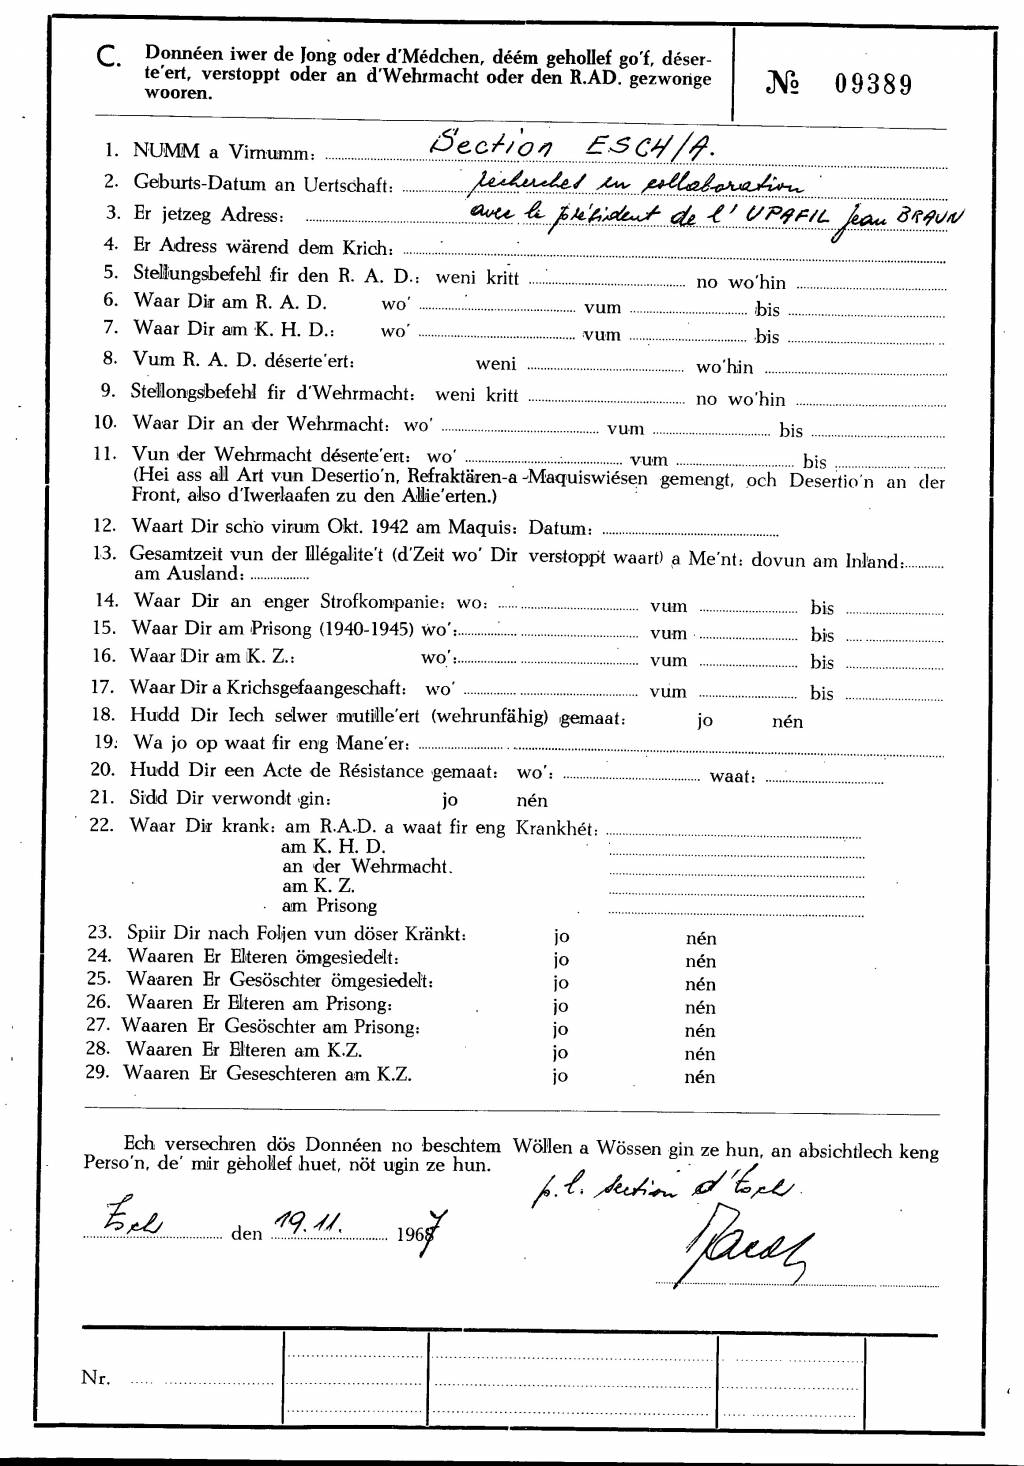 C. Donnéen iwer de Jong oder d'Médchen, déém gehollef go'f, déser-
te'ert, verstoppt oder an d'Wehrmacht oder den R.AD. gezworige
wooren.
№ 09389
1. NUMM a Virnumm: Section ESCH/A.
2. Geburts-Datum an Uertschaft: recherches en collaboration
3. Er jetzeg Adress: avec le président de l'UPAFIL Jean BRAUN
4. Er Adress wärend dem Krich:
5. Stellungsbefehl fir den R. A. D.: weni kritt no wo'hin
6. Waar Dir am R. A. D. wo' vum bis
7. Waar Dir am K. H. D.: wo' vum bis
8. Vum R. A. D. déserte'ert: weni wo'hin
9. Stellongsbefehl fir d'Wehrmacht: weni kritt no wo'hin
10. Waar Dir an der Wehrmacht: wo' vum bis
11. Vun der Wehrmacht déserte'ert: wo' vum bis
(Hei ass all Art vun Desertio'n, Refraktären-a-Maquiswiésen gemengt, och Desertio'n an der
Front, also d'Iwerlaafen zu den Allie'erten.)
12. Waart Dir scho virum Okt. 1942 am Maquis: Datum:
13. Gesamtzeit vun der Illégalite't (d'Zeit wo' Dir verstoppt waart) a Me'nt: dovun am Inland:
am Ausland:
14. Waar Dir an enger Strofkompanie: wo: vum bis
15. Waar Dir am Prisong (1940-1945) wo': vum bis
16. Waar Dir am K. Z.: wo': vum bis
17. Waar Dir a Krichsgefaangeschaft: wo' vum bis
18. Hudd Dir Iech selwer mutille'ert (wehrunfähig) gemaat: jo nén
19. Wa jo op waat fir eng Mane'er:
20. Hudd Dir een Acte de Résistance gemaat: wo': waat:
21. Sidd Dir verwondt gin: jo nén
22. Waar Dir krank: am R.A.D. a waat fir eng Krankhét:
am K. H. D.
an der Wehrmacht.
am K. Z.
am Prisong
23. Spiir Dir nach Foljen vun döser Kränkt: jo nén
24. Waaren Er Elteren ömgesiedelt: jo nén
25. Waaren Er Gesöschter ömgesiedelt: jo nén
26. Waaren Er Elteren am Prisong: jo nén
27. Waaren Er Gesöschter am Prisong: jo nén
28. Waaren Er Elteren am K.Z. jo nén
29. Waaren Er Geseschteren am K.Z. jo nén
Ech versechren dös Donnéen no beschtem Wöllen a Wössen gin ze hun, an absichtlech keng
Perso'n, de' mir gehollef huet, nöt ugin ze hun.
p.l. section d'Esch.
Esch den 19.11. 1967
Nr.